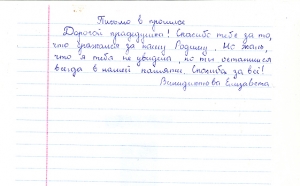 Письмо в прошлое
Дорогой прадедушка! Спасибо тебе за то,
что сражался за нашу Родину. Но жаль,
что я тебя не увидела, но ты останешься
всегда в нашей памяти. Спасибо за всё!
Елизавета